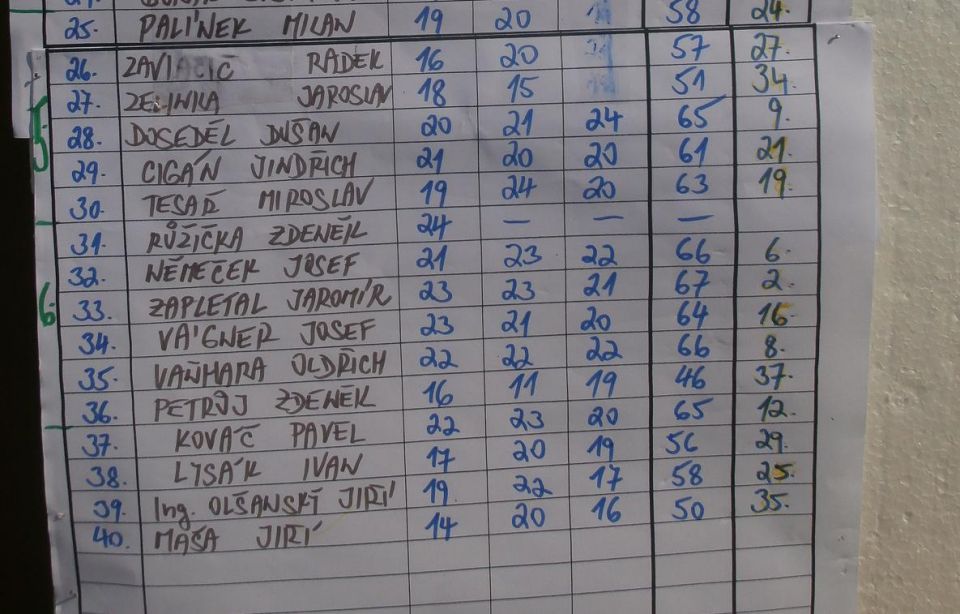 25. PALÍNEK MILAN 19 20 58 24.
26. RADEK 16 20 57 27.
27. ZELINKA JAROSLAV 18 15 51 34.
5 28. DOSEDĚL DUŠAN 20 21 24 65 9.
29. CIGÁN JINDŘICH 21 20 20 61 21.
30. TESAŘ MIROSLAV 19 24 20 63 19.
31. RŮŽIČKA ZDENĚK 24 — — —
32. NĚMEČEK JOSEF 21 23 22 66 6.
6 33. ZAPLETAL JAROMÍR 23 23 21 67 2.
34. VÁGNER JOSEF 23 21 20 64 16.
35. VAŇHARA OLDŘICH 22 22 22 66 8.
36. PETRŮJ ZDENĚK 16 11 19 46 37.
37. KOVÁČ PAVEL 22 23 20 65 12.
38. LYSÁK IVAN 17 20 19 56 29.
39. Ing. OLŠANSKÝ JIŘÍ 19 22 17 58 25.
40. MÁŠA JIŘÍ 14 20 16 50 35.